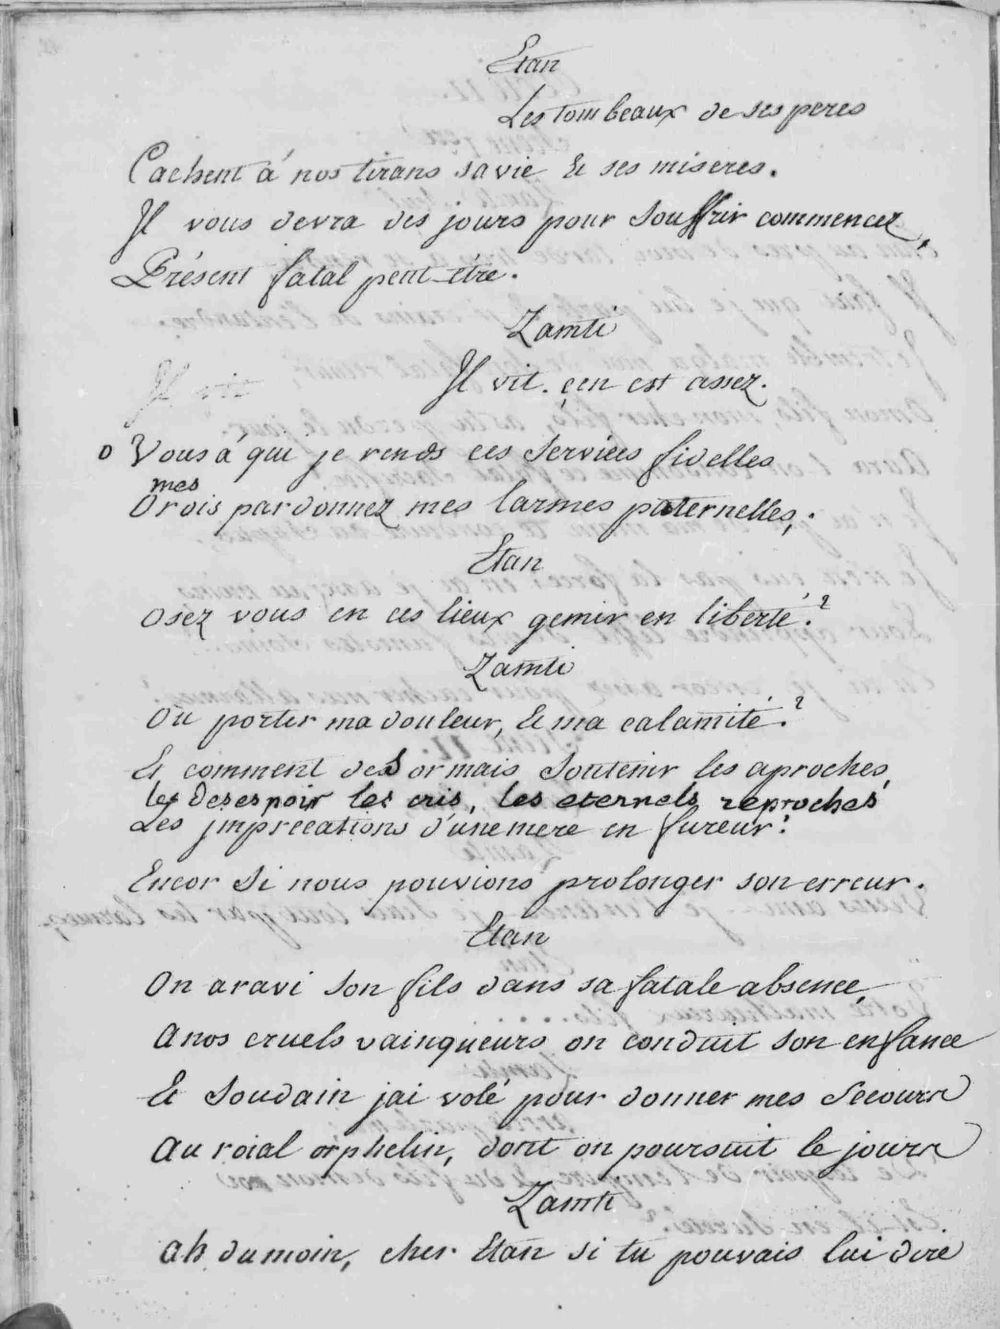 Etan
Les tombeaux de ses peres
Cachent á nos tirans sa vie & ses miseres.
Il vous devra des jours pour souffrir commencez,
Présent fatal peut-etre.
Zamti
Il vit. ç'en est assez.
o Vous á qui je rends ces services fidelles
mes
O rois pardonnez mes larmes paternelles,.
Etan
osez vous en ces lieux gemir en liberté?
Zamti
Ou porter ma douleur, & ma calamité?
Et comment desormais soutenir les aproches,
les desespoir les cris, les eternels reproches
Les jmprecations d'une mere en fureur?
Encor si nous pouvions prolonger son erreur.
Etan
On a ravi son fils dans sa fatale absence,
A nos cruels vainqueurs on conduit son enfance
Et soudain jai volé pour donner mes secours
Au roial orphelin, dont on poursuit le jours
Zamti
ah du moin, cher Etan si tu pouvais lui dire